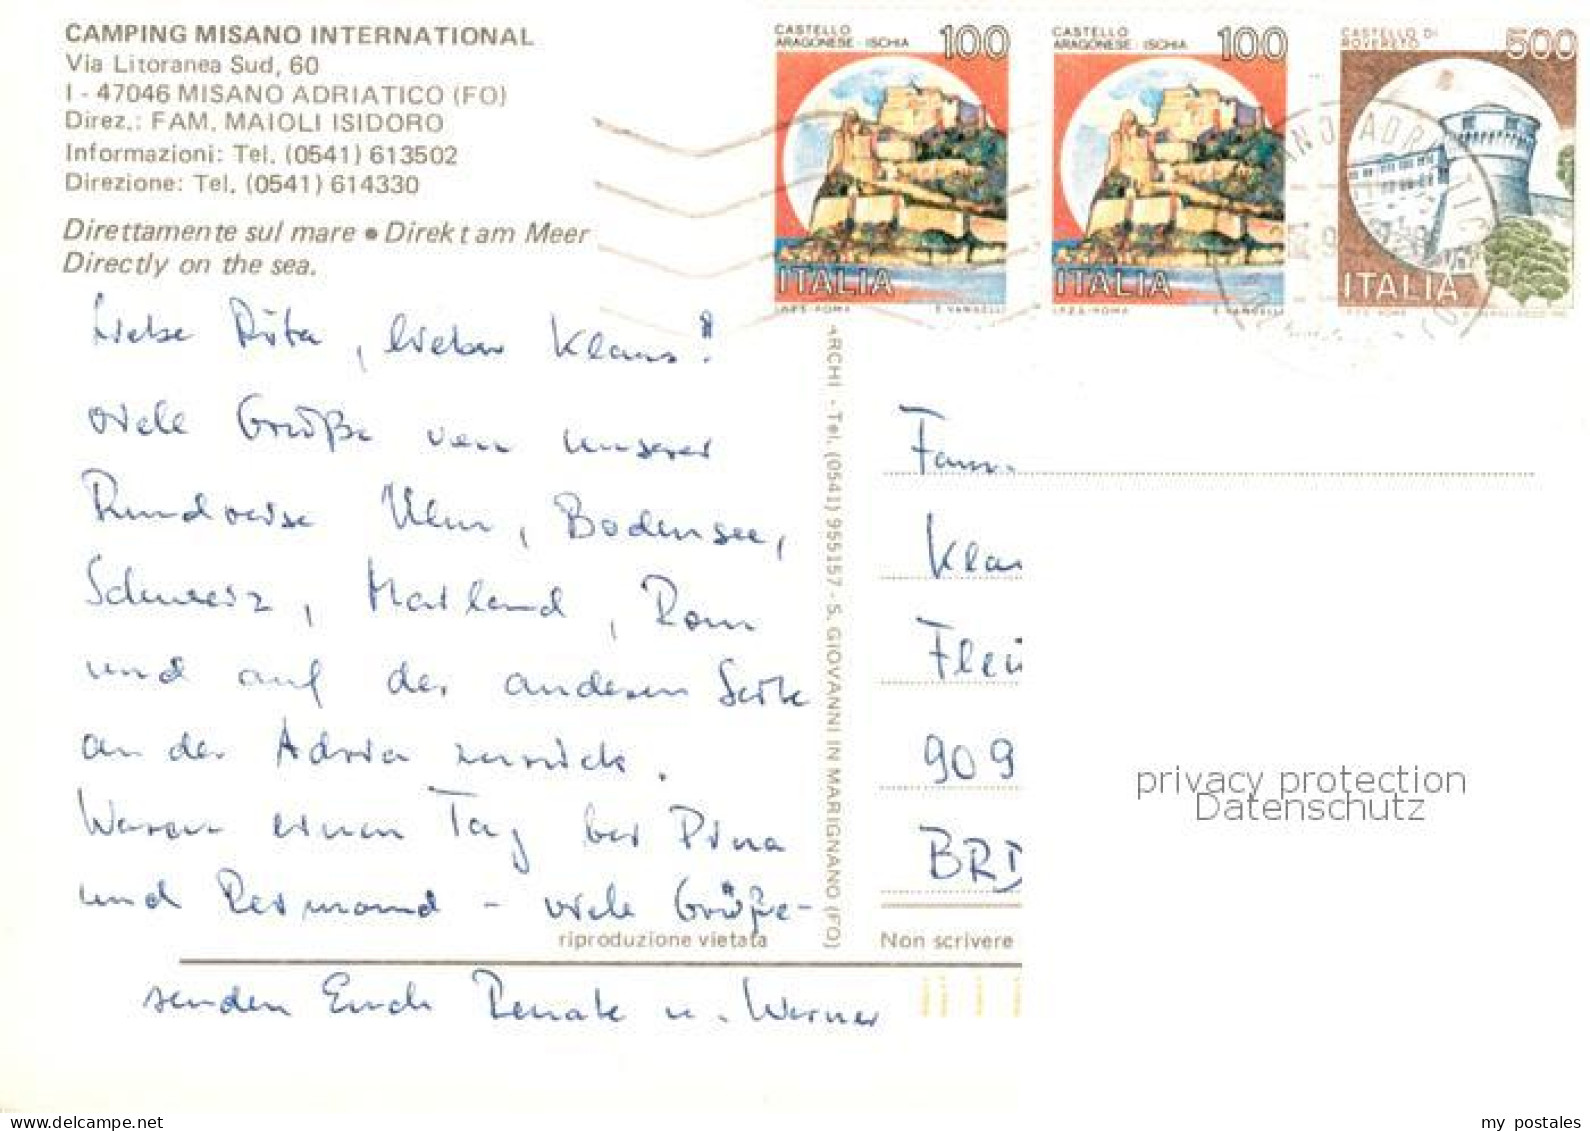 CAMPING MISANO INTERNATIONAL
Via Litoranea Sud, 60
I - 47046 MISANO ADRIATICO (FO)
Direz.: FAM. MAIOLI ISIDORO
Informazioni: Tel. (0541) 613502
Direzione: Tel. (0541) 614330
Direttamente sul mare ● Direkt am Meer
Directly on the sea.
CASTELLO
ARAGONESE - ISCHIA
100
ITALIA
I.P.Z.S. - ROMA E. VANGELLI
CASTELLO
ARAGONESE - ISCHIA
100
ITALIA
I.P.Z.S. - ROMA E. VANGELLI
CASTELLO DI
ROVERETO
500
ITALIA
I.P.Z.S. ROMA
Liebe Rita, lieber Klaus!
viele Grüße von unserer
Rundreise Ulm, Bodensee,
Schweiz, Mailand, Rom
und auf der anderen Seite
an der Adria zurück.
Waren einen Tag bei Pina
und Reimond - viele Grüße -
senden Euch Renate u. Werner
ARCHI - Tel. (0541) 955157 - S. GIOVANNI IN MARIGNANO (FO)
riproduzione vietata
Non scrivere
Fam.
Klau
Fleu
909
BRD
privacy protection
Datenschutz
my postales